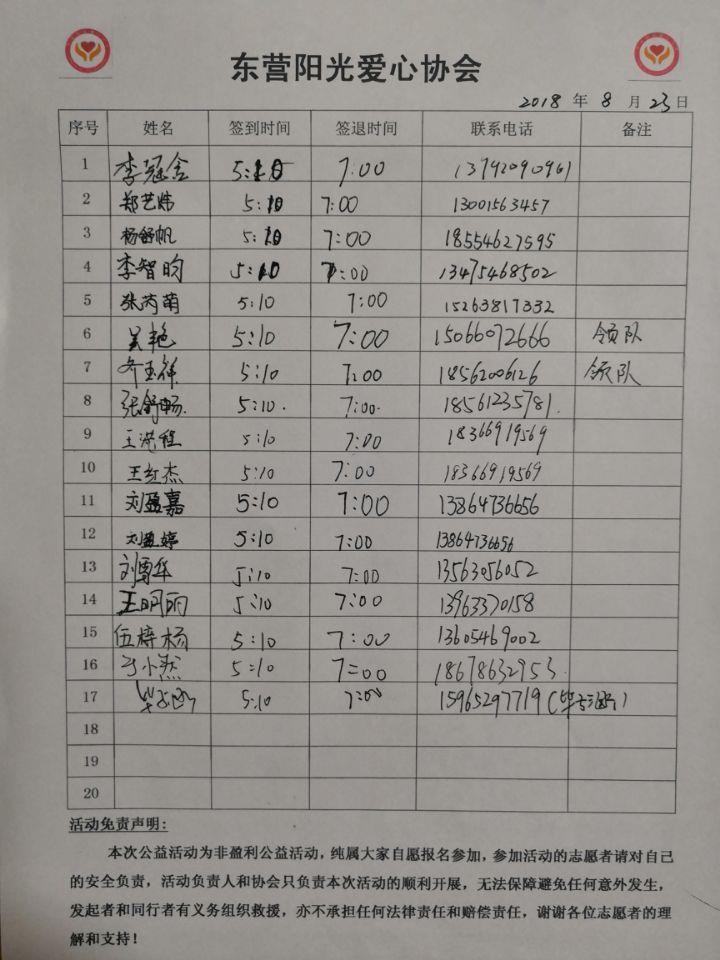 东营阳光爱心协会
2018 年 8 月 23 日
序号 姓名 签到时间 签退时间 联系电话 备注
1 李冠含 5:10 7:00 13792090961
2 郑艺炜 5:10 7:00 13001563457
3 杨舒帆 5:10 7:00 18554627595
4 李智昀 5:10 7:00 13475468502
5 张芮萌 5:10 7:00 15263817332
6 吴艳 5:10 7:00 15066072666 领队
7 齐玉祥 5:10 7:00 18562006126 领队
8 张舒畅. 5:10. 7:00. 18561235781.
9 王洪程 5:10 7:00 18366919569
10 王红杰 5:10 7:00 18366919569
11 刘盈嘉 5:10 7:00 13864736656
12 刘盈婷 5:10 7:00 13864736656
13 5:10 7:00 13563056052
14 王明丽 5:10 7:00 13963370158
15 伍梓杨 5:10 7:00 13605469002
16 于小然 5:10 7:00 18678632953.
17 5:10 7:00 15965297719
18
19
20
活动免责声明：
本次公益活动为非盈利公益活动，纯属大家自愿报名参加，参加活动的志愿者请对自己
的安全负责，活动负责人和协会只负责本次活动的顺利开展，无法保障避免任何意外发生，
发起者和同行者有义务组织救援，亦不承担任何法律责任和赔偿责任，谢谢各位志愿者的理
解和支持！